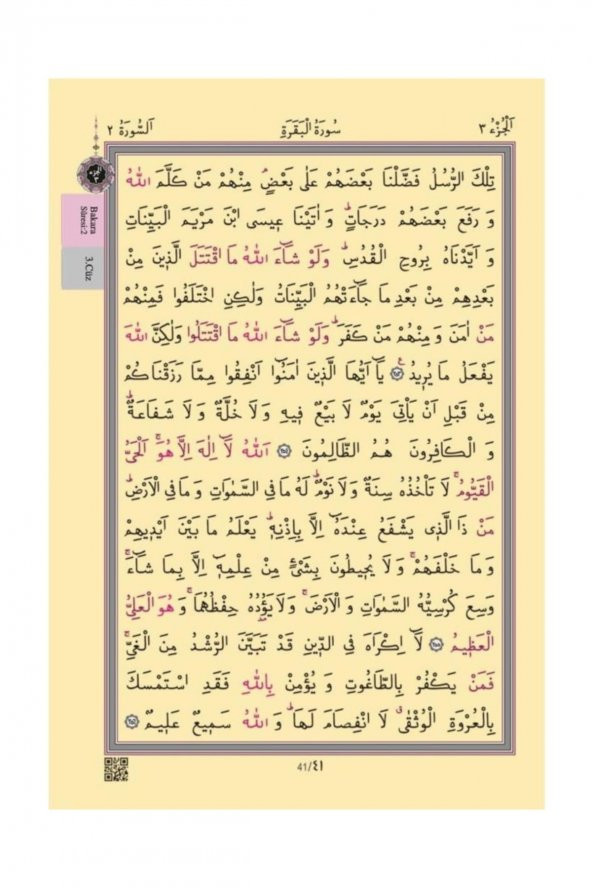 اَلْجُزْءُ ٣
سُورَةُ الْبَقَرَةِ
اَلسُّورَةُ ٢
تِلْكَ الرُّسُلُ فَضَّلْنَا بَعْضَهُمْ عَلٰى بَعْضٍۘ مِنْهُمْ مَنْ كَلَّمَ اللّٰهُ
وَ رَفَعَ بَعْضَهُمْ دَرَجَاتٍۜ وَ اٰتَيْنَا عٖيسَى ابْنَ مَرْيَمَ الْبَيِّنَاتِ
وَ اَيَّدْنَاهُ بِرُوحِ الْقُدُسِۜ وَلَوْ شَٓاءَ اللّٰهُ مَا اقْتَتَلَ الَّذٖينَ مِنْ
بَعْدِهِمْ مِنْ بَعْدِ مَا جَٓاءَتْهُمُ الْبَيِّنَاتُ وَلٰكِنِ اخْتَلَفُوا فَمِنْهُمْ
مَنْ اٰمَنَ وَ مِنْهُمْ مَنْ كَفَرَۜ وَلَوْ شَٓاءَ اللّٰهُ مَا اقْتَتَلُوا وَلٰكِنَّ اللّٰهَ
يَفْعَلُ مَا يُرٖيدُ ۟ ﴿٢٥٣﴾ يَٓا اَيُّهَا الَّذٖينَ اٰمَنُٓوا اَنْفِقُوا مِمَّا رَزَقْنَاكُمْ
مِنْ قَبْلِ اَنْ يَأْتِىَ يَوْمٌ لَا بَيْعٌ فٖيهِ وَلَا خُلَّةٌ وَلَا شَفَاعَةٌۜ
وَ الْكَافِرُونَ هُمُ الظَّالِمُونَ ﴿٢٥٤﴾ اَللّٰهُ لَٓا اِلٰهَ اِلَّا هُوَۚ اَلْحَىُّ
الْقَيُّومُۚ لَا تَأْخُذُهُ سِنَةٌ وَلَا نَوْمٌۜ لَهُ مَا فِى السَّمٰوَاتِ وَ مَا فِى الْاَرْضِۜ
مَنْ ذَا الَّذٖى يَشْفَعُ عِنْدَهُٓ اِلَّا بِاِذْنِهٖۜ يَعْلَمُ مَا بَيْنَ اَيْدٖيهِمْ
وَ مَا خَلْفَهُمْۚ وَلَا يُحٖيطُونَ بِشَىْءٍ مِنْ عِلْمِهٖٓ اِلَّا بِمَا شَٓاءَۚ
وَسِعَ كُرْسِيُّهُ السَّمٰوَاتِ وَ الْاَرْضَۚ وَلَا يَؤُ۫دُهُ حِفْظُهُمَاۚ وَ هُوَ الْعَلِىُّ
الْعَظٖيمُ ﴿٢٥٥﴾ لَٓا اِكْرَاهَ فِى الدّٖينِ قَدْ تَبَيَّنَ الرُّشْدُ مِنَ الْغَىِّۚ
فَمَنْ يَكْفُرْ بِالطَّاغُوتِ وَ يُؤْمِنْ بِاللّٰهِ فَقَدِ اسْتَمْسَكَ
بِالْعُرْوَةِ الْوُثْقٰىۗ لَا انْفِصَامَ لَهَاۜ وَ اللّٰهُ سَمٖيعٌ عَلٖيمٌ ﴿٢٥٦﴾
41/٤١
Bakara
Sûresi:2
3.Cüz